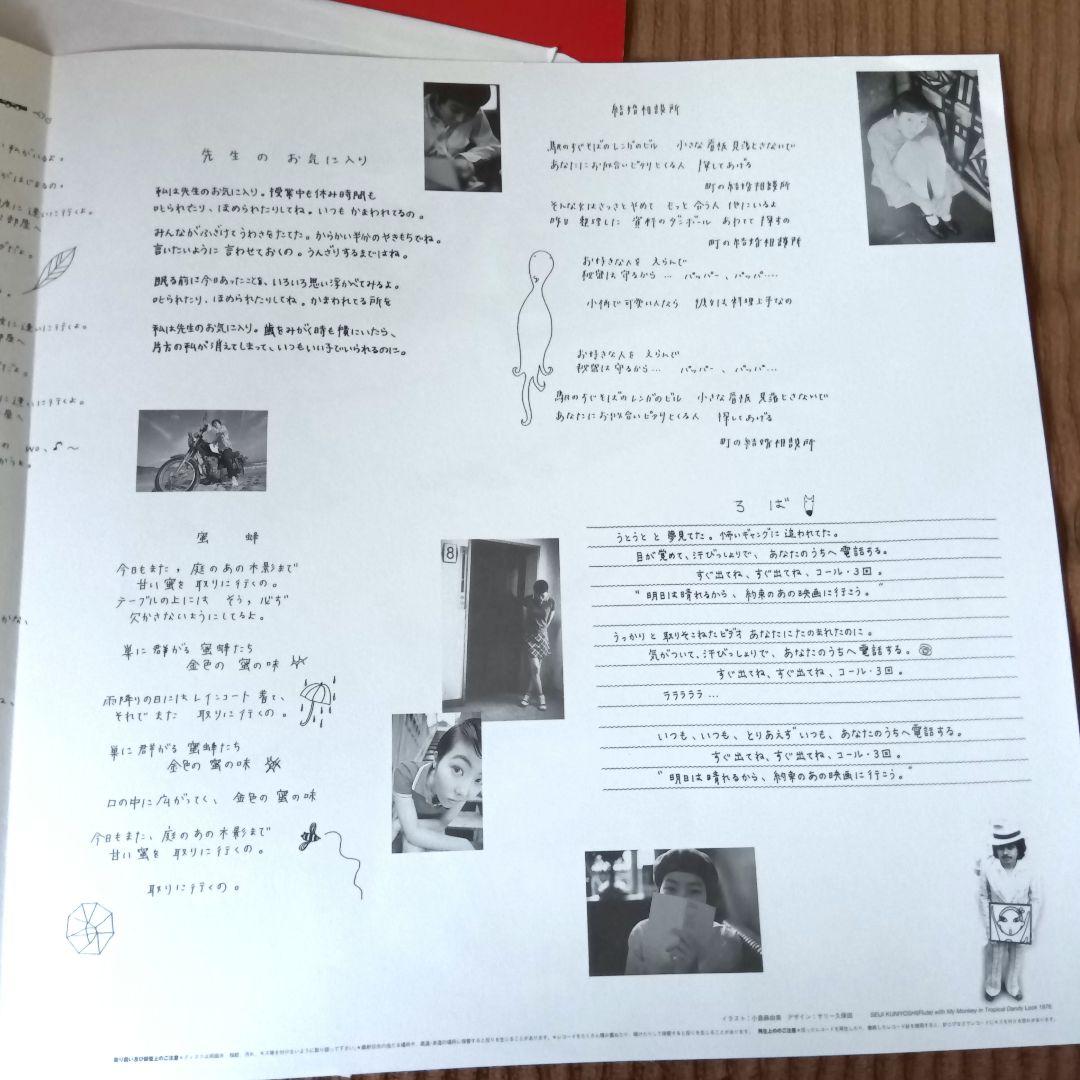 先生のお気に入り
私は先生のお気に入り。授業中も休み時間も
叱られたり、ほめられたりしてね。いつもかまわれてるの。
みんながふざけてうわさをたてた。からかい半分のやきもちでね。
言いたいように言わせておくの。うんざりするまではね。
眠る前に今日あったことを、いろいろ思い浮かべてみるよ。
叱られたり、ほめられたりしてね。かまわれてる所を
私は先生のお気に入り。歯をみがく時も横にいたら、
片方の私が消えてしまって、いつもいい子でいられるのに。
蜜蜂
今日もまた,庭のあの木影まで
甘い蜜を取りに行くの。
テーブルの上にはそう,必ず
欠かさないようにしてるよ。
巣に群がる蜜蜂たち
金色の蜜の味
雨降りの日にはレインコート着て、
それでまた取りに行くの。
巣に群がる蜜蜂たち
金色の蜜の味
口の中に広がってく、金色の蜜の味
今日もまた、庭のあの木影まで
甘い蜜を取りに行くの。
取りに行くの。
結婚相談所
駅のすぐそばのレンガのビル 小さな看板 見落とさないで
あなたにお似合いピタリとくる人 探してあげる
町の結婚相談所
そんな女はさっさとやめて もっと合う人 他にいるよ
昨日 整理した 資料のダンボール あわてて探すの
町の結婚相談所
お好きな人を えらんで
秘密は守るから… パッパー、パッパ….
小柄で可愛い人なら 彼女は料理上手なの
お好きな人を えらんで
秘密は守るから… パッパー、パッパ…
駅のすぐそばのレンガのビル 小さな看板 見落とさないで
あなたにお似合いピタリとくる人 探してあげる
町の結婚相談所
ろば
うとうとと夢見てた。怖いギャングに追われてた。
目が覚めて、汗びっしょりで、あなたのうちへ電話する。
すぐ出てね、すぐ出てね、コール・3回。
“明日は晴れるから、約束のあの映画に行こう。”
うっかりと取りそこねたビデオ あなたにたのまれたのに。
気がついて、汗びっしょりで、あなたのうちへ電話する。
すぐ出てね、すぐ出てね、コール・3回。
ラララララ…
いつも、いつも、とりあえずいつも、あなたのうちへ電話する。
すぐ出てね、すぐ出てね、コール・3回。
“明日は晴れるから、約束のあの映画に行こう。”
8
イラスト:小島麻由美 デザイン:サリー久保田
SEIJI KUNIYOSHI(Flute) with My Monkey in Tropical Dandy Look 1976